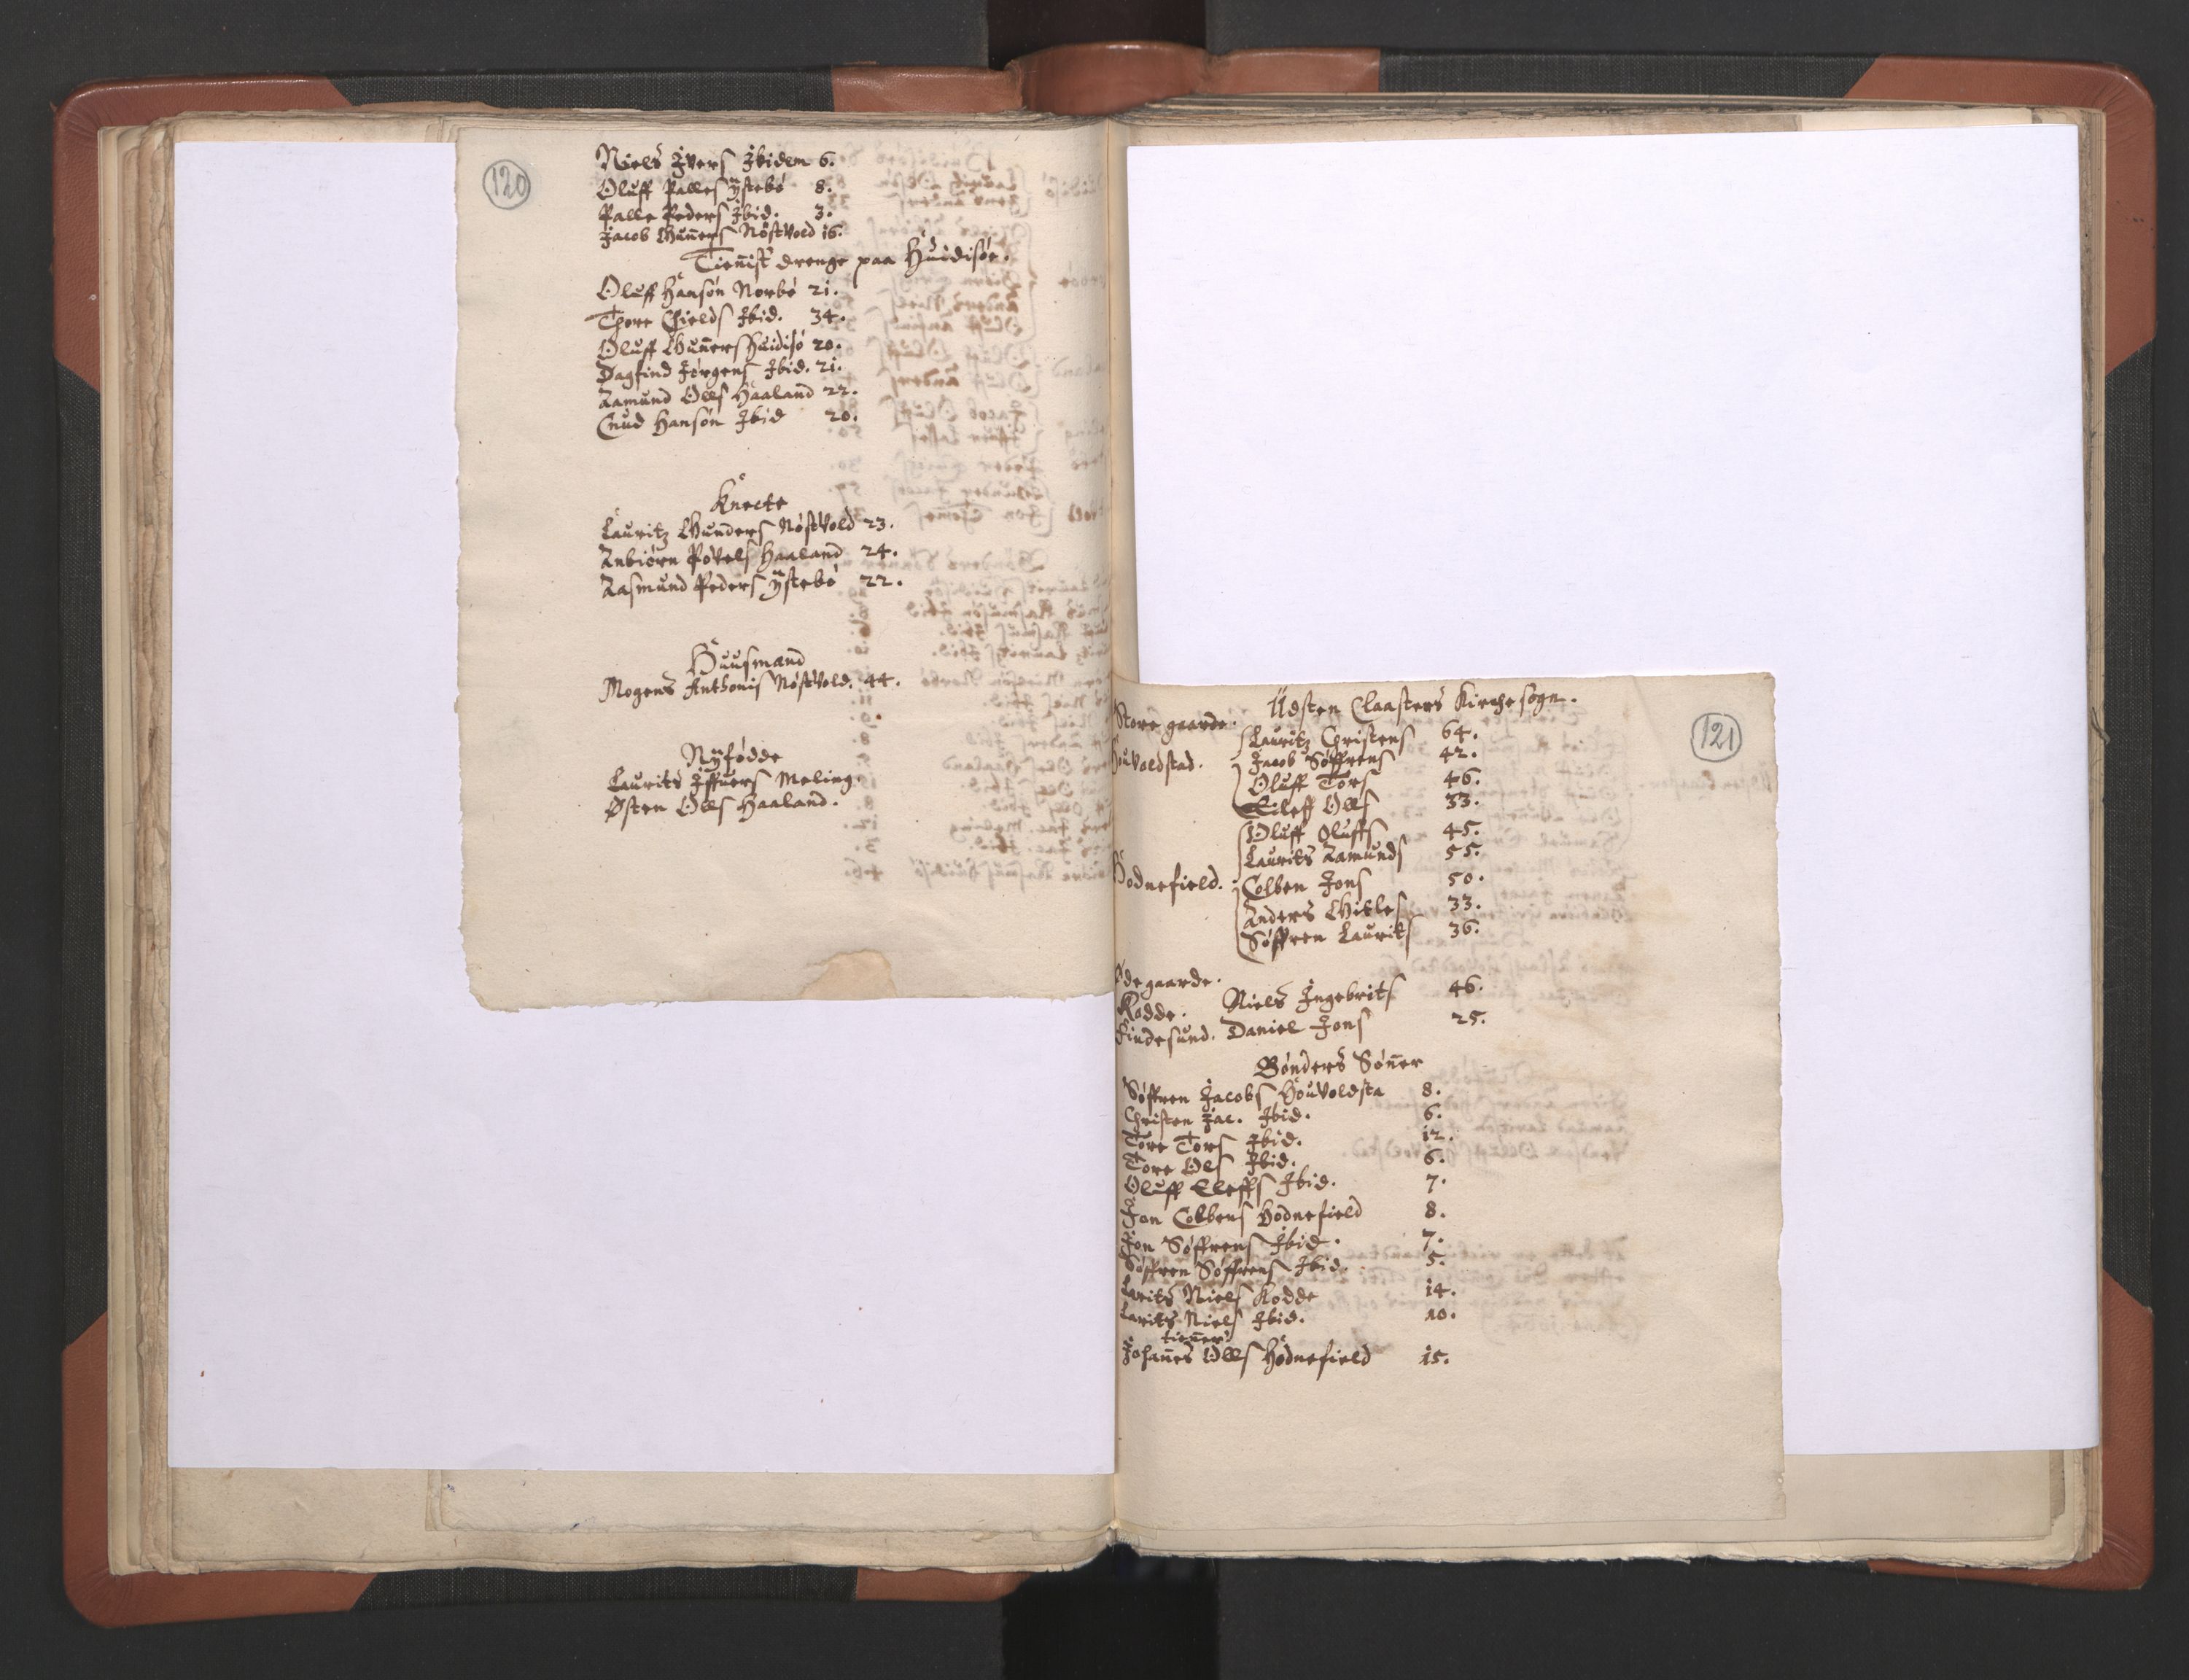 120
Niels Ivers Ibidem 6.
Oluff Palles Ÿstebø 8.
Palle Peders Ibid. 3.
Jacob Gunners Nøstvold 16.
Tienist drenge paa Huidisøe.
Oluff Hansøn Norbø 21.
Thore Chields Ibid. 34.
Oluff Gunners Huidisø 20.
Dagfind Jørgens Ibid. 21.
Aamund Olls Haaland 22.
Cnud Hansøn Ibid 20.
Knecte
Lauritz Gunders Nøstvold 23.
Anbiørn Povels Haaland 24.
Aasmund Peders Ÿstebø 22.
Huusmænd
Mogens Anthonis Nøstvold. 44.
Nÿfødde
Laurits Iffuers Meling.
Østen Olls Haaland.
121
Udsten Claasters Kirchesogn.
Store gaarde.
Houvoldstad. Lauritz Christens 64.
Jacob Søffrens 42.
Oluff Tors 46.
Eileff Olls 33.
Hodnefield. Oluff Oluffs 45.
Laurits Aamunds 55.
Colben Jons 50.
Anders Gitles 33.
Søffren Laurits 36.
Ødegaarde.
Rodde. Niels Ingebrits 46.
Findesund. Daniel Jons 25.
Bønders Sønner
Søffren Jacobs Houvoldsta 8.
Christen Jac. Ibid. 6.
Tore Tors Ibid. 12.
Tore Ols Ibid. 6.
Oluff Eleffs Ibid. 7.
Jon Colbens Hodnefield 8.
Jon Søffrens Ibid. 7.
Søffren Søffrens Ibid. 5.
Larits Niels Rodde 14.
Larits Niels Ibid. 10.
tienner
Johannes Olls Hodnefield 15.